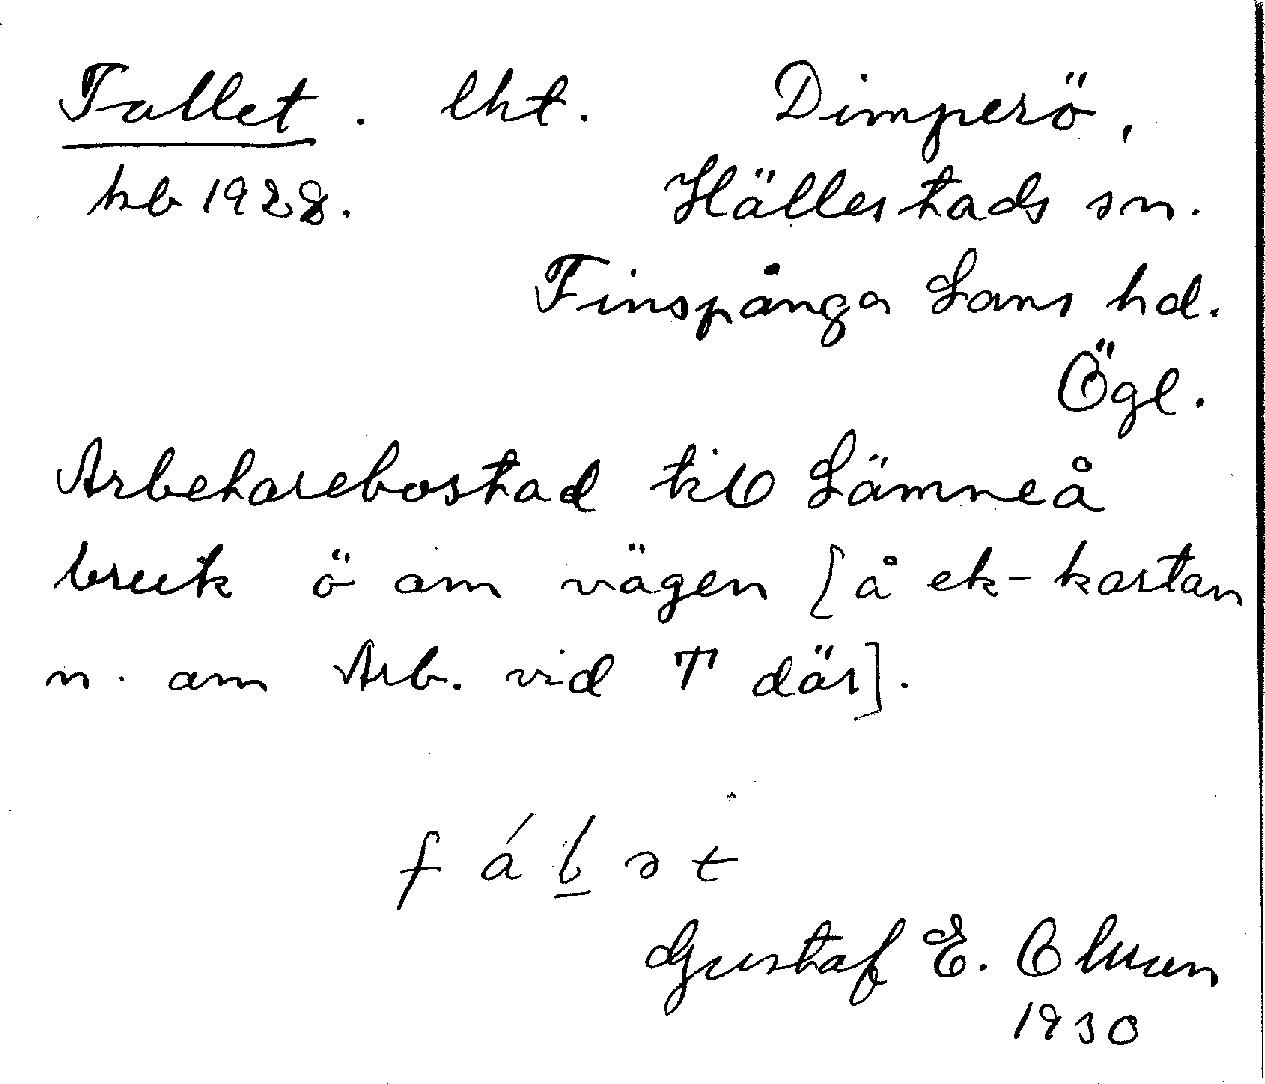 Fallet. lht. Dimperö,
kb 1928. Hällestads sn.
Finspånga Läns hd.
Ögl.
Arbetarebostad till Lämneå
bruk ö om vägen [å ek-kartan
n. om Arb. vid T där].
f á l̲ ə t
Gustaf E. Olsson
1930